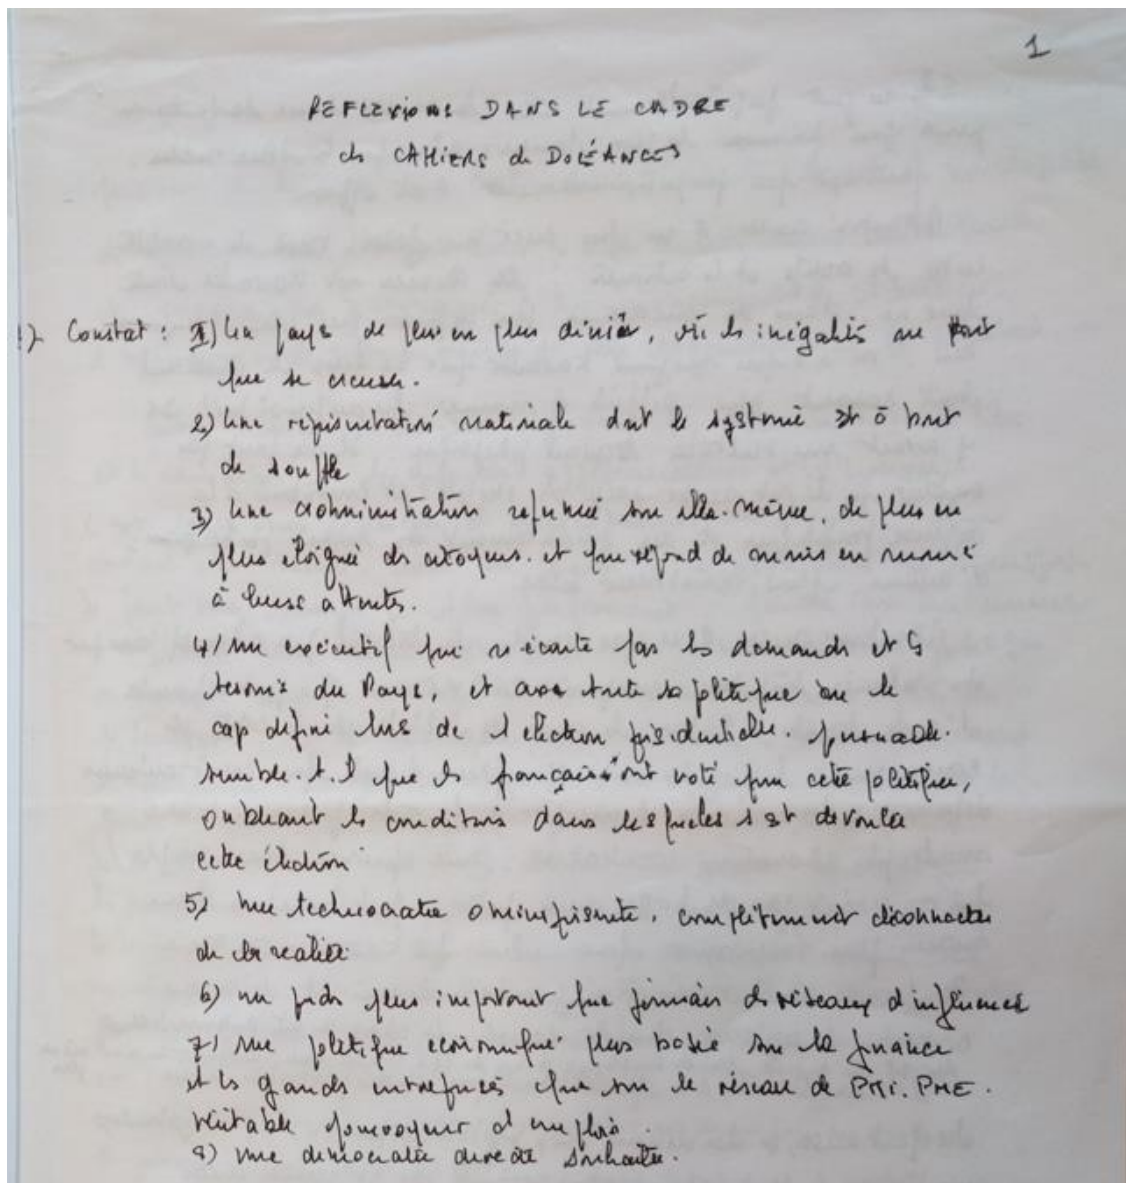 1
REFLEXIONS DANS LE CADRE
des CAHIERS de DOLÉANCES
1) Constat : 1) Un pays de plus en plus divisé, où les inégalités ne font
que se creuser.
2) Une représentation nationale dont le système est à bout
de souffle
3) Une administration refermée sur elle-même, de plus en
plus éloignée des citoyens. et qui répond de moins en moins
à leurs attentes.
4/ un exécutif qui n'écoute pas les demandes et les
besoins du Pays, et axe toute sa politique sur le
cap défini lors de l'élection présidentielle. persuadé.
semble-t-il que les français ont voté pour cette politique,
oubliant les conditions dans lesquelles s'est déroulée
cette élection
5) une technocratie omniprésente, complètement déconnectée
de la réalité
6) un poids plus important que jamais des réseaux d'influence
7) une politique économique plus basée sur la finance
et les grandes entreprises que sur le réseau de PMI. PME.
véritable pourvoyeur d'emplois.
8) une démocratie directe souhaitée.